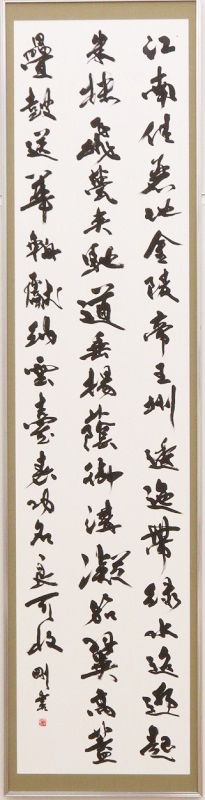 江南佳麗地金陵帝王州逶迤帶綠水迢遞起
朱樓飛甍夾馳道垂楊蔭御溝凝笳翼高蓋
疊鼓送華輈獻納雲臺表功名良可收 剛書